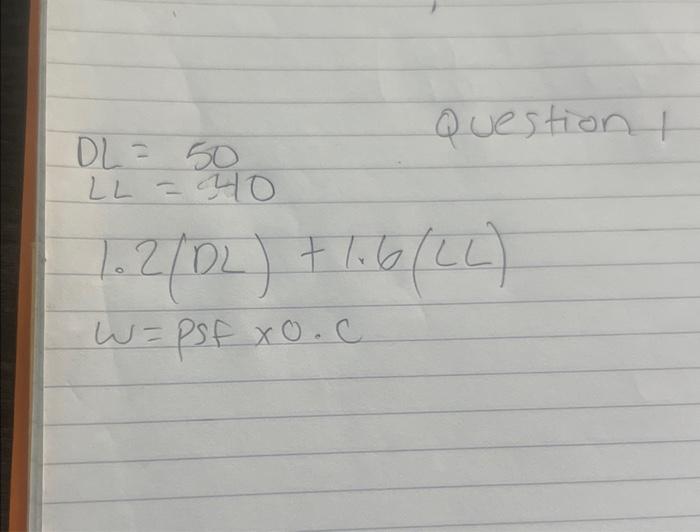 Question 1
DL = 50
LL =
1.2(DL) + 1.6(LL)
W = PSF x O.C